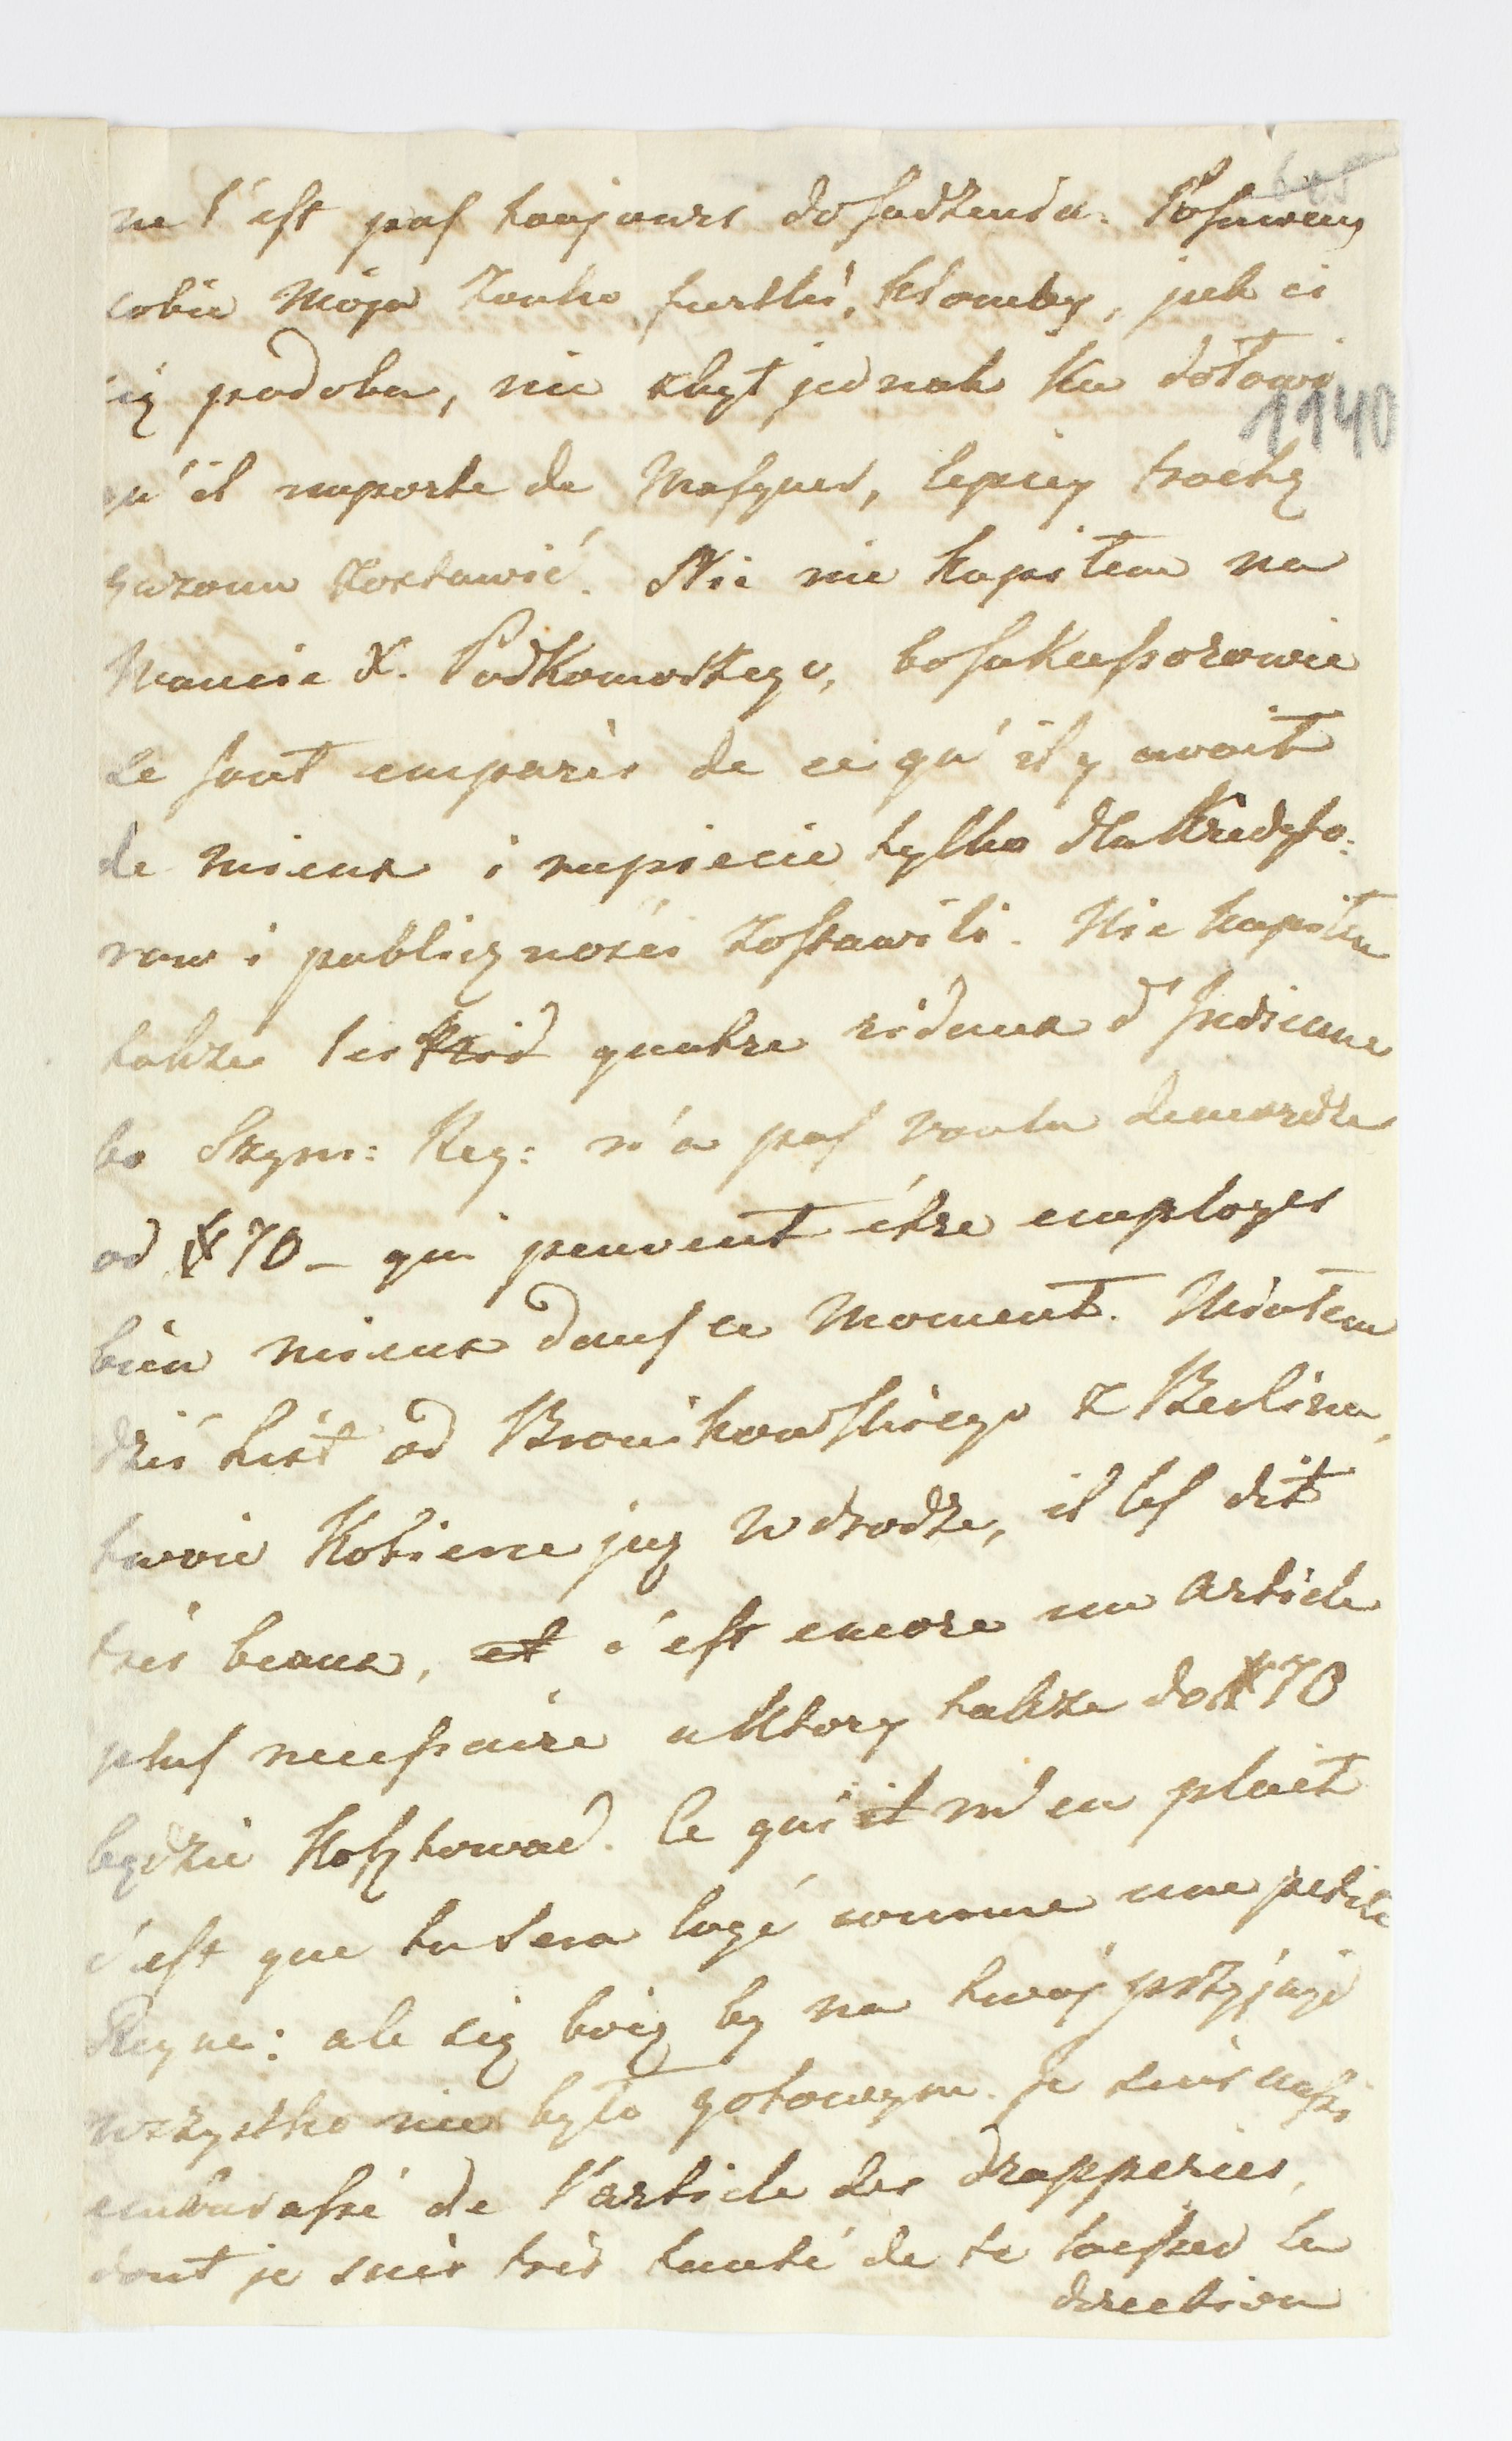 605
ne l'est pas toujours do sadzenia. Posuway
sobie Moja Zonko furtki, klomby, jak ci
się podoba, nie zbyt jednak ku dołowi
1140
qu'il n'aporte de Masques, lepiey trochę
gazonu zostawić. Nic nie kupiłem na
Wancie X. Podkomorzego, bo sukcessorowie
se sont emparés de ce qu'il y avait
de mieux i rupiecie tylko dla Kredyto:
row i publiczności zostawili. Nie kupiłem
także les quatre rideaux d'Indienne
bo Szym: Rey: n'a pas voulu demordre
od # 70 – qui peuvent être employes
bien mieux dans ce Moment. Miałem
dziś list od Bronikowskiego z Berlina,
twoie Kobierce już w drodze, il les dit
très beaux, et c'est encore un article
plus necessaire a ktory także do # 70
będzie kosztować. Ce qui it m'en plait
c'est que tu sera logé comme une petite
Reyne: ale się boię by na twoj przyjazd
wszystko nie było gotowym. Je suis assez
embarassé de l'article des drapperies,
dont je suis très tenté de te laisser la
direction